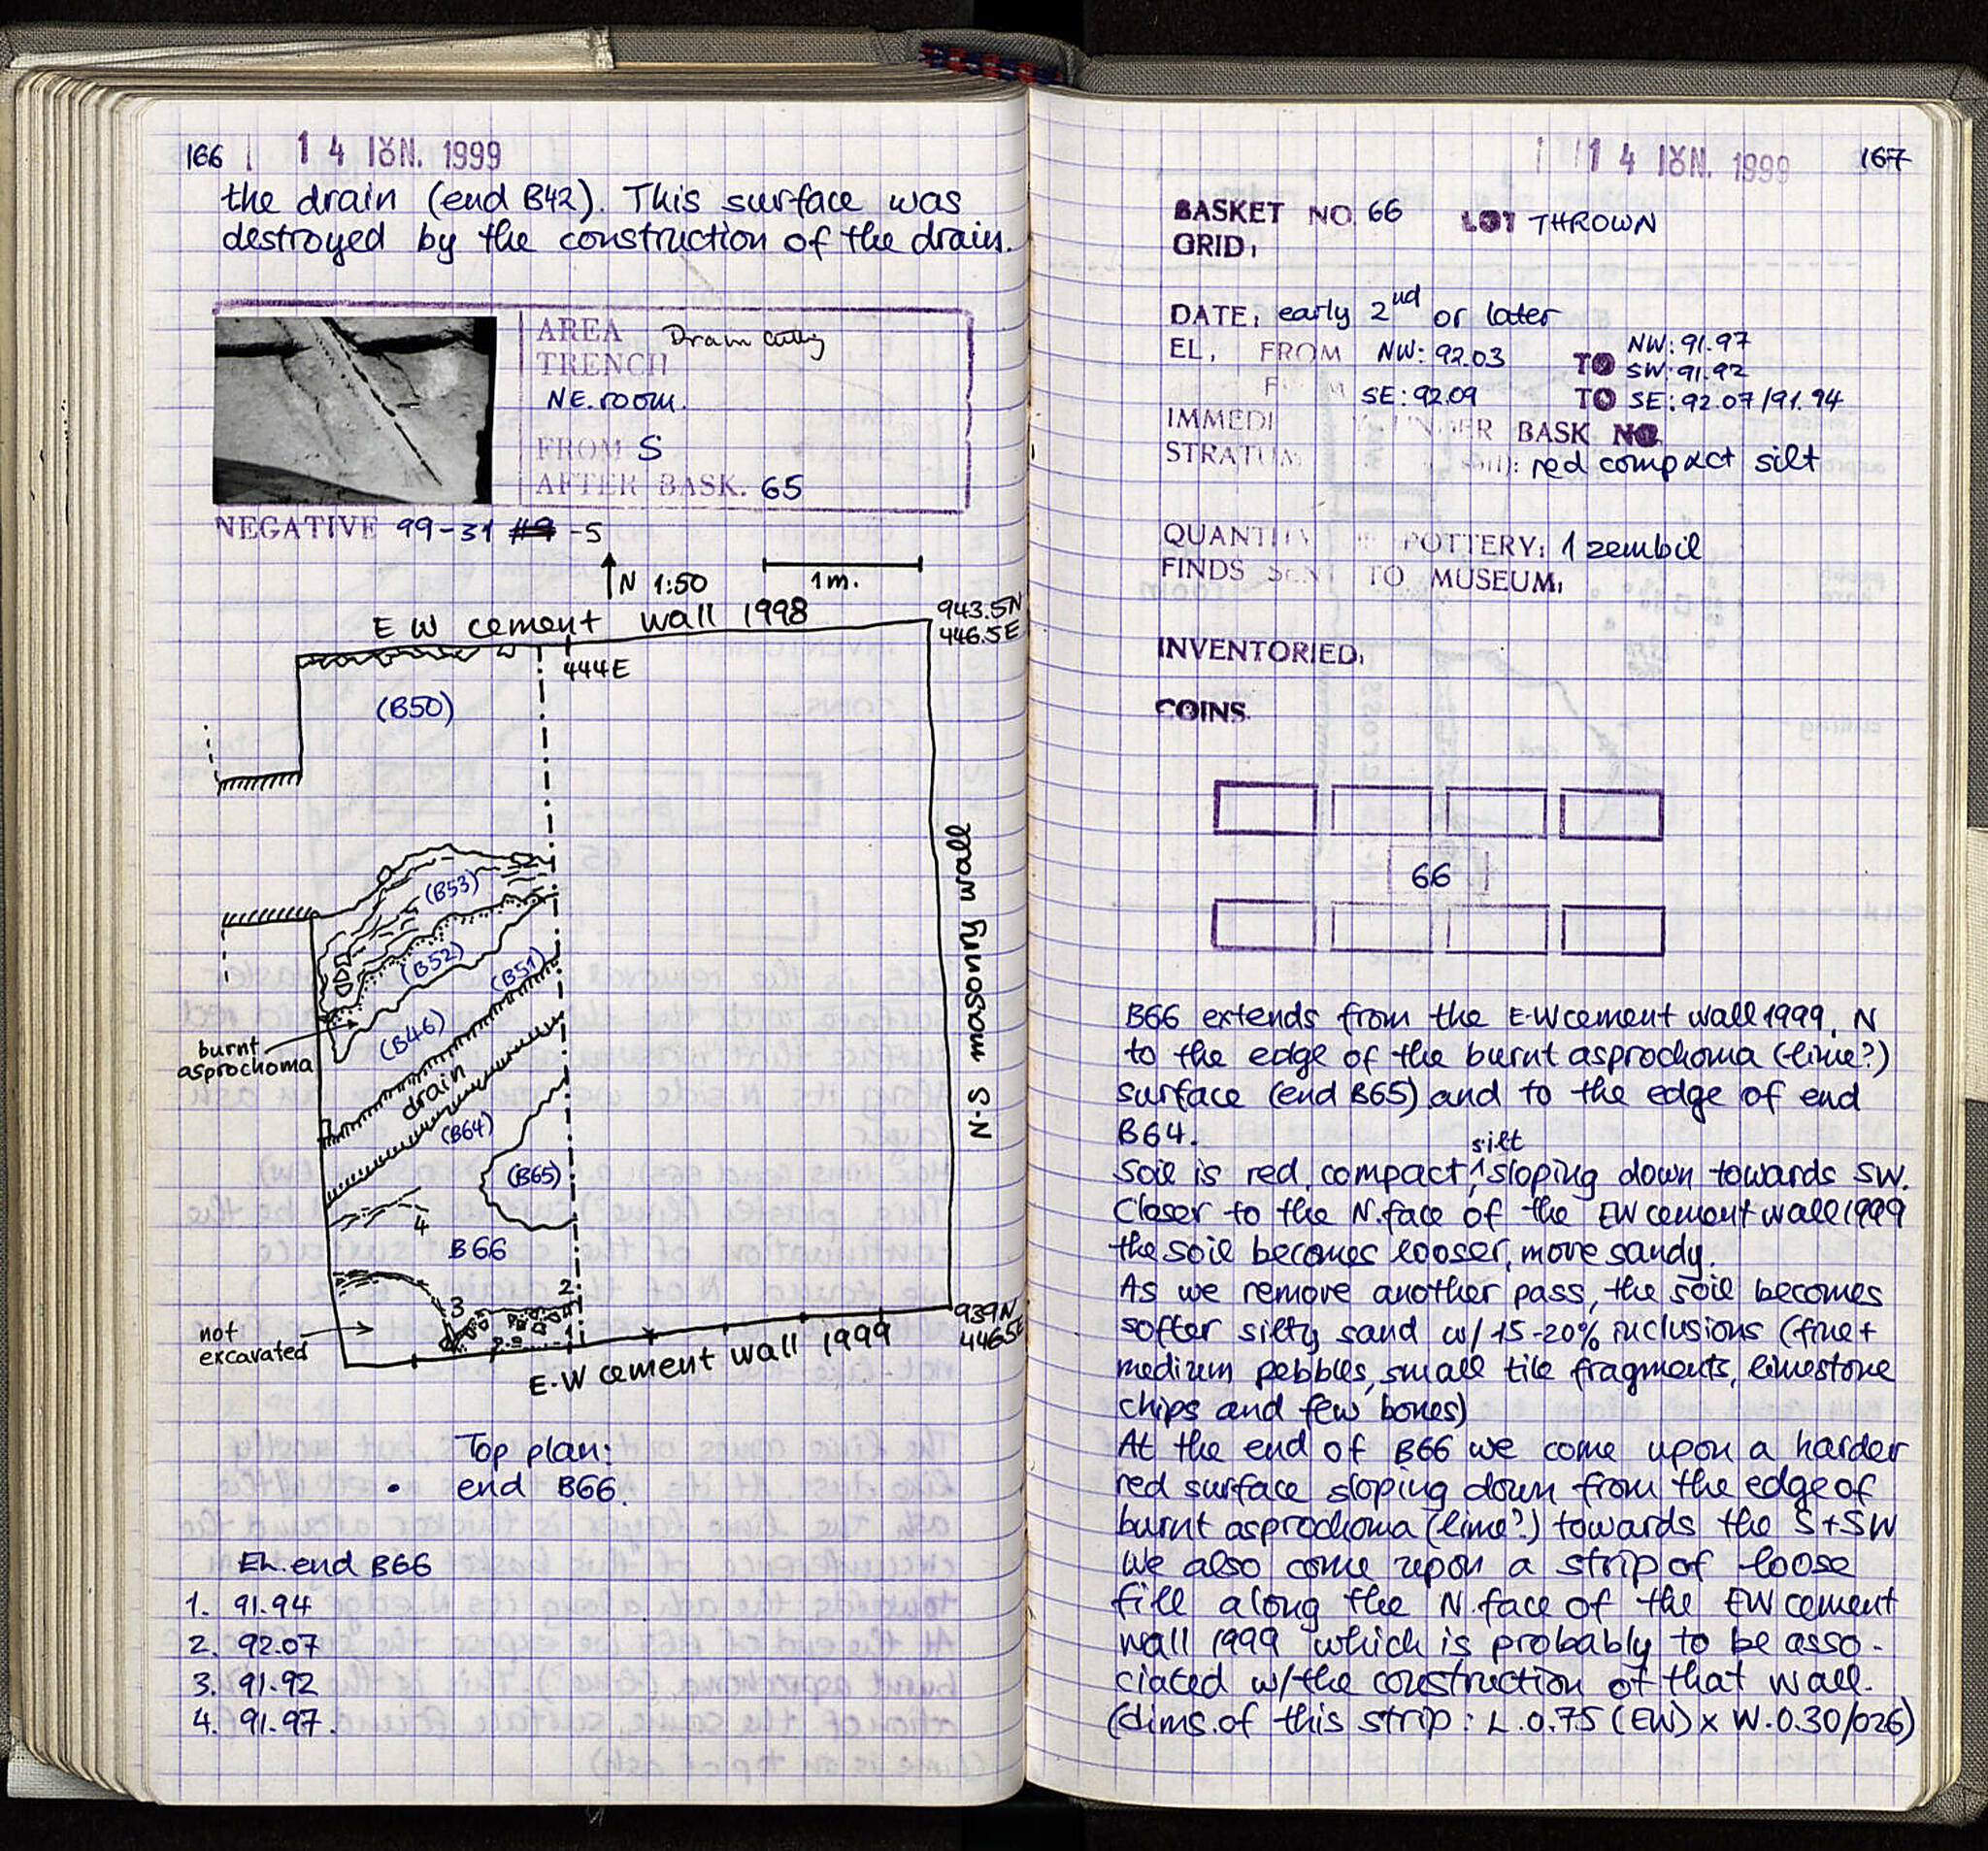 166 14 ΙȣΝ. 1999
the drain (end B42). This surface was
destroyed by the construction of the drain.
AREA Drain
TRENCH
NE. room.
FROM S
AFTER BASK. 65
NEGATIVE 99-31 -5
N 1:50 1m.
E W cement wall 1998
943.5N
446.5E
444E
(B50)
(B53)
(B52)
(B51)
(B46)
burnt
asprochoma
drain
(B64)
(B65)
4
B66
2
3
1
not
excavated
N-S masonry wall
939N
446.5E
E-W cement wall 1999
Top plan:
end B66.
EL. end B66
1. 91.94
2. 92.07
3. 91.92
4. 91.97.
14 ΙȣΝ. 1999 167
BASKET NO. 66 LOT THROWN
GRID,
DATE, early 2nd or later
EL, FROM NW: 92.03 TO NW: 91.97
SW: 91.92
SE: 92.09 TO SE: 92.07/91.94
IMMEDI UNDER BASK NO.
STRATUM red compact silt
QUANTITY OF POTTERY: 1 zembil
FINDS SENT TO MUSEUM,
INVENTORIED,
COINS.
66
B66 extends from the E-W cement wall 1999, N
to the edge of the burnt asprochoma (lime?)
surface (end B65) and to the edge of end
B64.
Soil is red, compact, silt sloping down towards SW.
Closer to the N. face of the EW cement wall 1999
the soil becomes looser, more sandy.
As we remove another pass, the soil becomes
softer silty sand w/ 15-20% inclusions (fine +
medium pebbles, small tile fragments, limestone
chips and few bones)
At the end of B66 we come upon a harder
red surface sloping down from the edge of
burnt asprochoma (lime?) towards the S + SW
We also come upon a strip of loose
fill along the N. face of the EW cement
wall 1999 which is probably to be asso-
ciated w/the construction of that wall.
(dims. of this strip: L. 0.75 (EW) x W. 0.30/026)